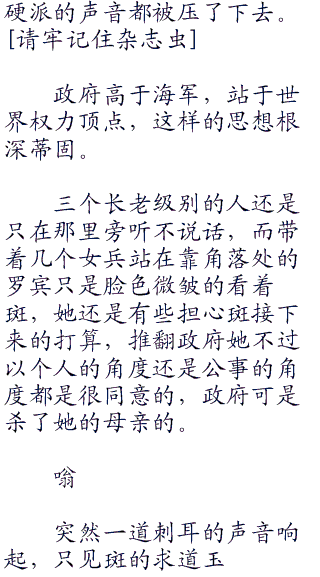 硬派的声音都被压了下去。
[请牢记住杂志虫]
政府高于海军，站于世
界权力顶点，这样的思想根
深蒂固。
三个长老级别的人还是
只在那里旁听不说话，而带
着几个女兵站在靠角落处的
罗宾只是脸色微皱的看着
斑，她还是有些担心斑接下
来的打算，推翻政府她不过
以个人的角度还是公事的角
度都是很同意的，政府可是
杀了她的母亲的。
嗡
突然一道刺耳的声音响
起，只见斑的求道玉